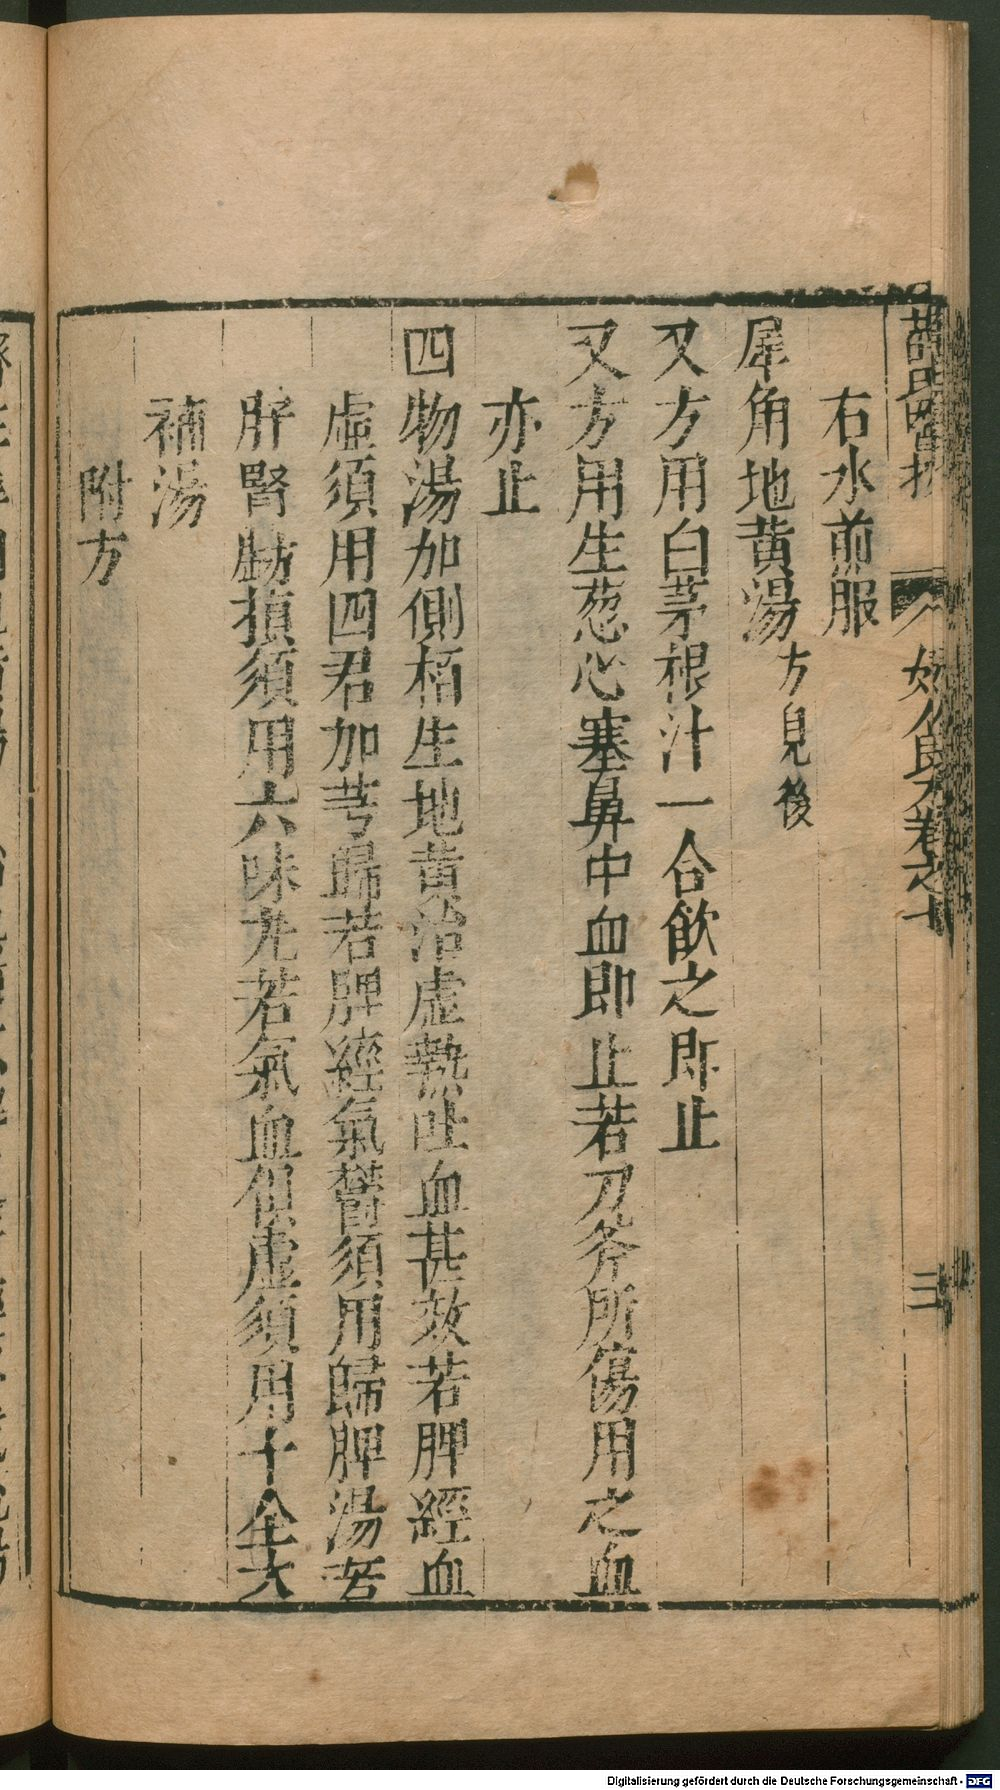 右水煎服
犀角地黄湯方見後
又方用白茅根汁一合飲之即止
又方用生葱心塞鼻中血即止若刀斧所傷用之血
亦止
四物湯加側栢生地黄治虚熱吐血甚效若脾經血
虛須用四君加芎歸若脾經氣鬱須用歸脾湯若
肝腎虧損須用六味丸若氣血俱虛須用十全大
補湯
附方
卷之十
三
Digitalisierung gefördert durch die Deutsche Forschungsgemeinschaft - DFG